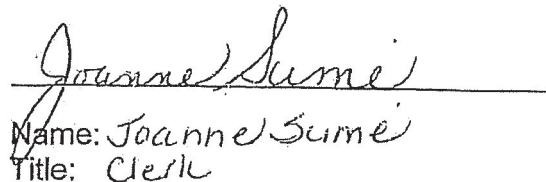 Joanne Sumé
Name: Joanne Sumé
Title: Clerk